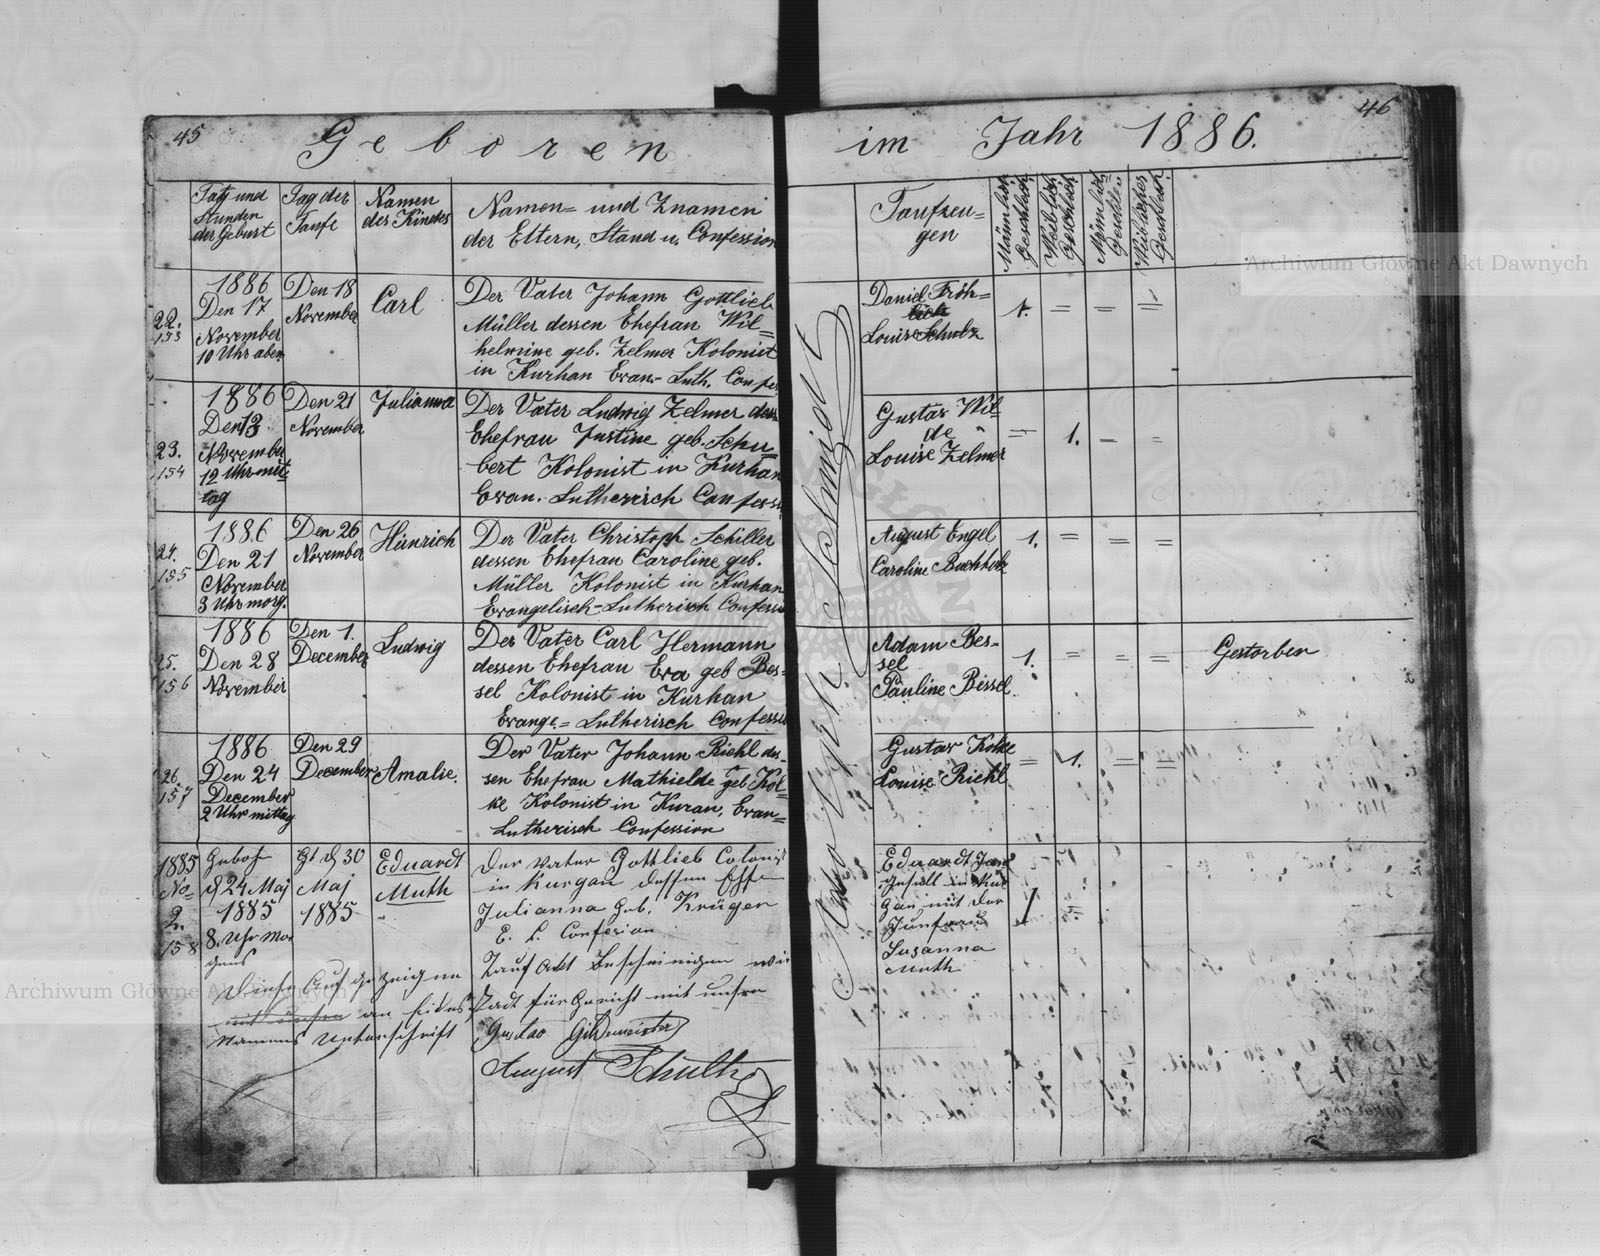 45
Geboren
Tag und
Stunden
der Geburt
Tag der
Taufe
Namen
des Kindes
Namen= und Znamen
der Eltern, Stand u. Confession
22.
153
1886
Den 17
November
10 Uhr aben
Den 18
November
Carl
Der Vater Johann Gottlieb
Müller dessen Ehefrau Wil=
helmine geb. Zelmer Kolonist
in Kurhan Evan- Luth. Confes
23.
154
1886
Den 13
November
12 Uhr mit
tag
Den 21
November
Julianna
Der Vater Ludwig Zelmer dess
Ehefrau Justine geb. Schu=
bert Kolonist in Kurhan
Evan. Lutherisch Confess
24.
155
1886
Den 21
November
3 Uhr morg.
Den 26
November
Heinrich
Der Vater Christoph Schiller
dessen Ehefrau Caroline geb.
Müller Kolonist in Kurhan
Evangelisch-Lutherisch Confess
25.
156
1886
Den 28
November
Den 1.
December
Ludwig
Der Vater Carl Hermann
dessen Ehefrau Eva geb Bes-
sel Kolonist in Kurhan
Evange= Lutherisch Confess
26.
157
1886
Den 24
December
2 Uhr mittag
Den 29
December
Amalie.
Der Vater Johann Riehl des-
sen Ehefrau Mathielde geb Kol=
ke Kolonist in Kuran, Evan=
Lutherisch Confession
1885
No
2.
158
Gebo
d 24 Maj
1885
8. Uhr Mor
gens
Gt d 30
Maj
1885
Eduardt
Muth
Der Vater Gottlieb Colonist
in Kurgan dessen Ehe
Julianna geb. Krüger
E. L. Confesion
Tauf Akt Bescheinigen wir
an Eides Stadt für Gericht mit unsre
Namens Unterschrift
Gustav Gildemeister
August Schultz
46
im Jahr 1886.
Taufzeu=
gen
Männlich
Geschlech.
Weiblich
Geschlech
Männlich
Geschle..
Weibliches
Geschlech.
Daniel Fröh=
lich
Louise Schulz
1. = = =
Gustav Wil
de "
Louise Zelmer
= 1. = =
August Engel
Caroline Buchholz
1. = = =
Adam Bes-
sel
Pauline Bessel.
1. = = =
Gestorben
Gustav Kolke
Louise Riehl
= 1. = =
Eduardt Jan
gesell in Kur
gan mit der
Junfrau
Susanna
Muth
1 =
Schmidt
Archiwum Główne Akt Dawnych
Archiwum Główne Akt Dawnych